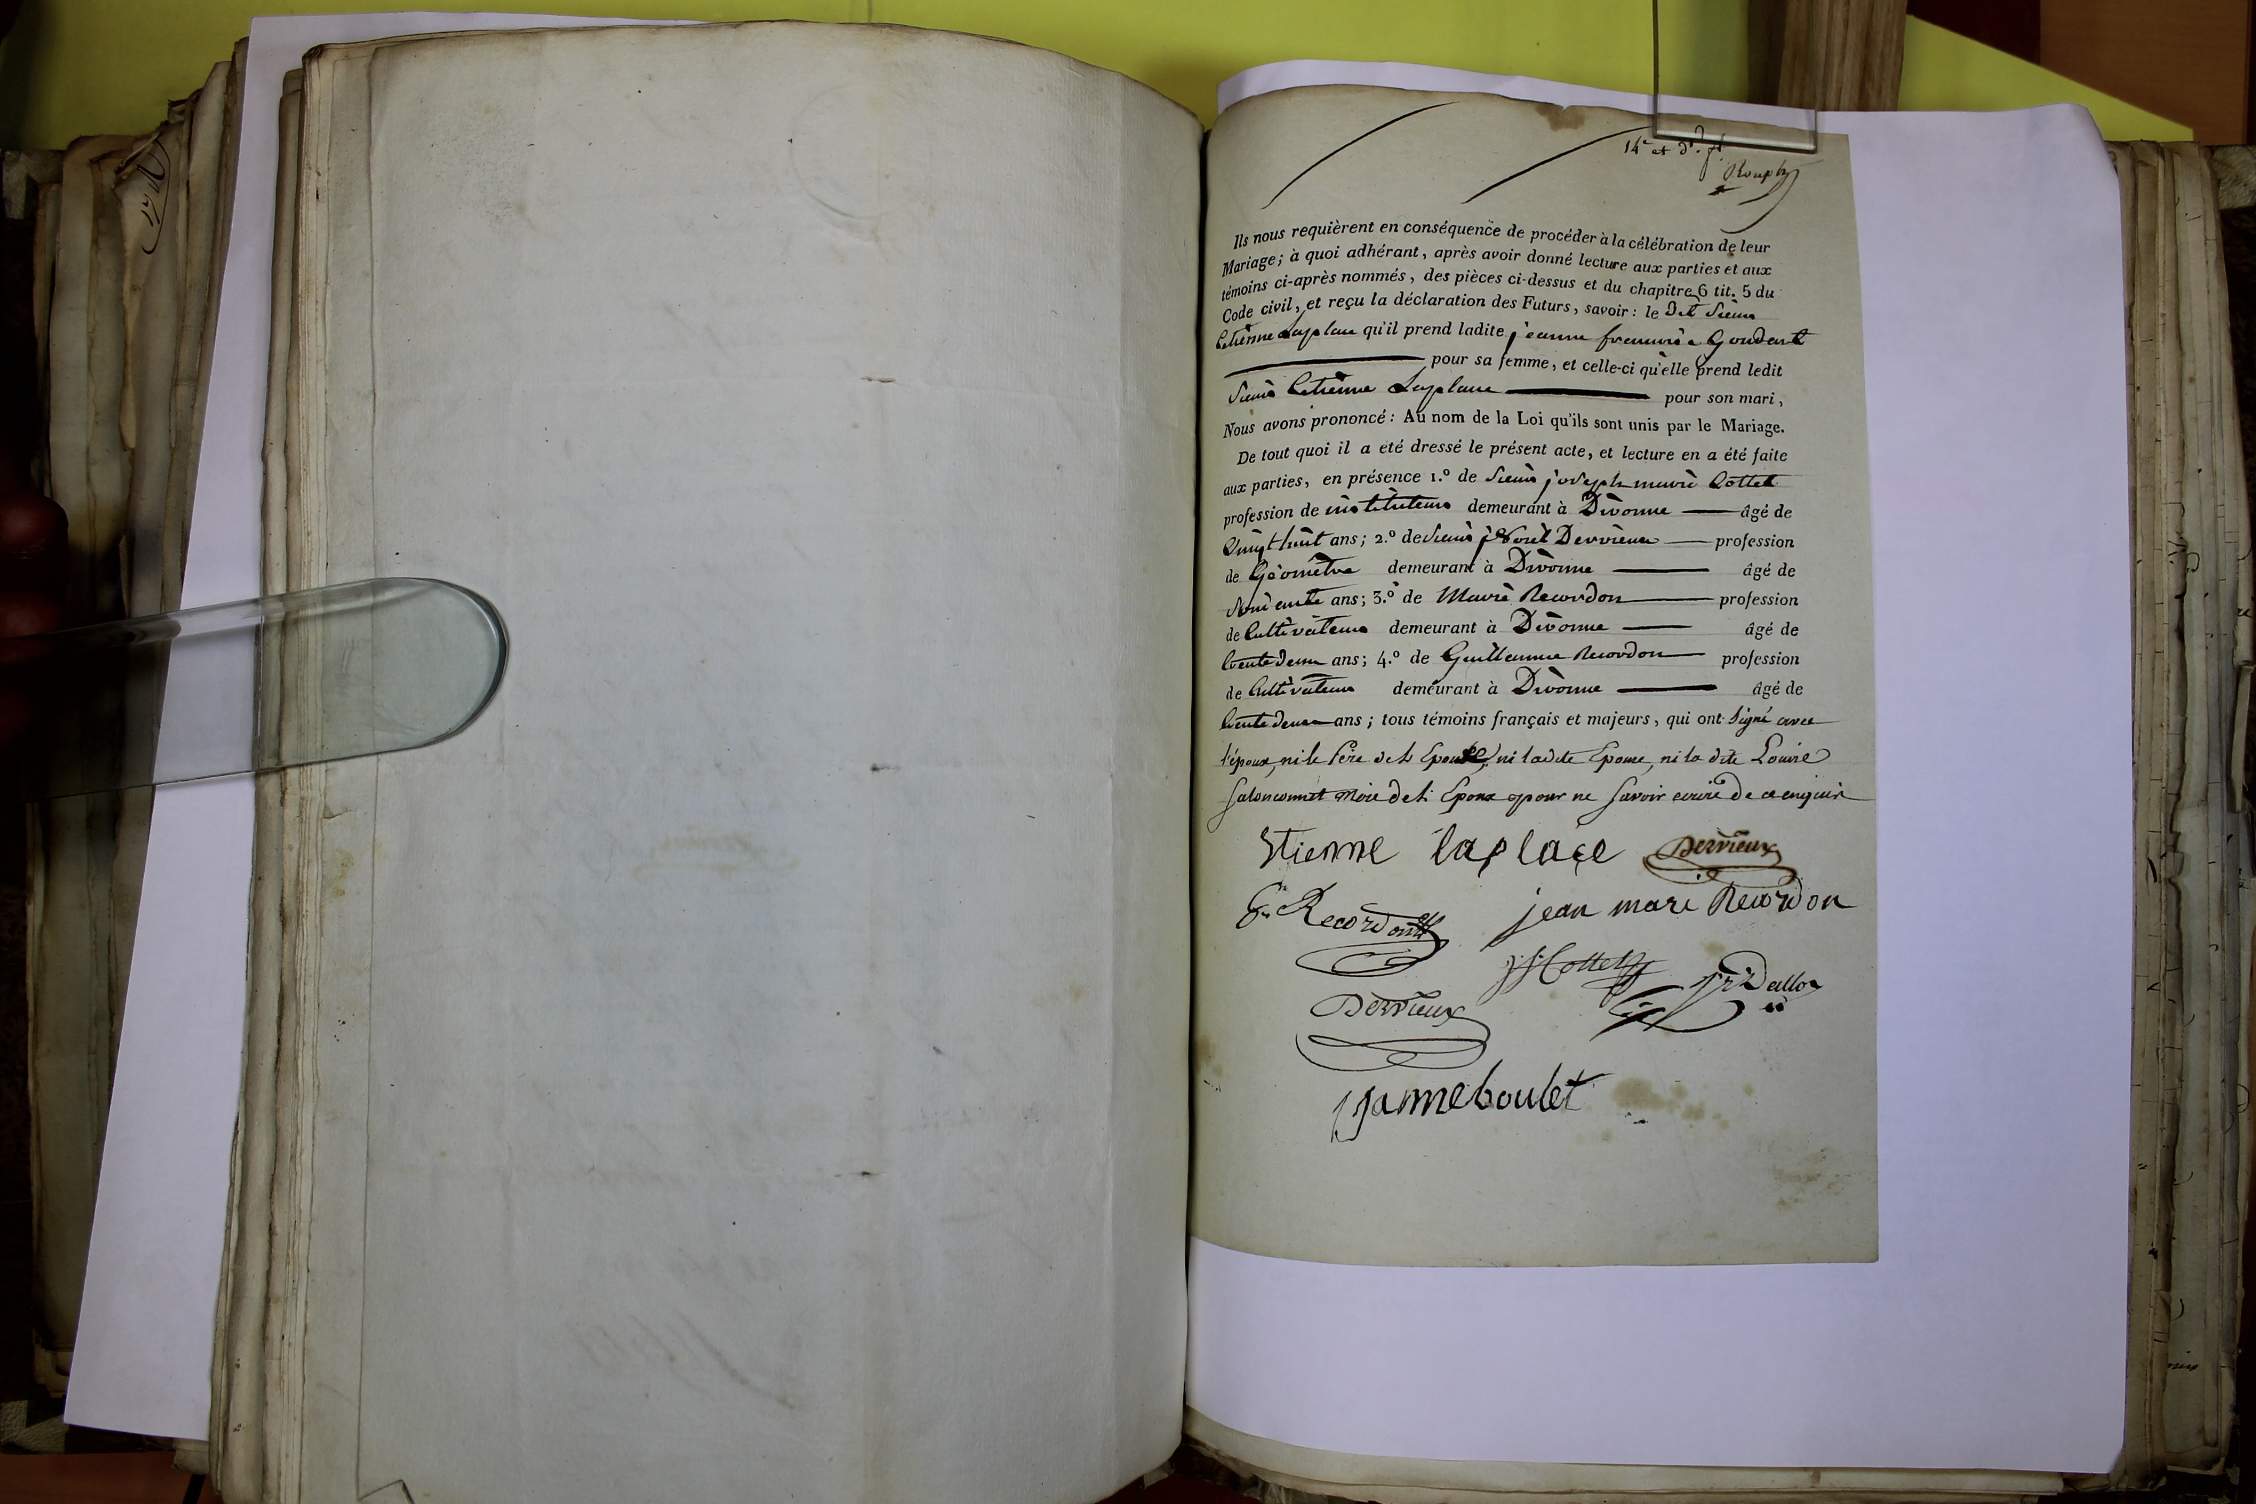 14e et dr. ft.
Rouph
Ils nous requièrent en conséquence de procéder à la célébration de leur
Mariage; à quoi adhérant, après avoir donné lecture aux parties et aux
témoins ci-après nommés, des pièces ci-dessus et du chapitre 6 tit. 5 du
Code civil, et reçu la déclaration des Futurs, savoir: le dit Sieur
Etienne Laplace qu'il prend ladite jeanne françoise Goudart
pour sa femme, et celle-ci qu'elle prend ledit
Sieur Etienne Laplace pour son mari,
Nous avons prononcé: Au nom de la Loi qu'ils sont unis par le Mariage.
De tout quoi il a été dressé le présent acte, et lecture en a été faite
aux parties, en présence 1.º de Sieur joseph marie Cottet
profession de instituteur demeurant à Divonne âgé de
Vingt huit ans; 2.º de Sieur Dervieux profession
de Géomètre demeurant à Divonne âgé de
ans; 3.º de Marie Recordon profession
de Cultivateur demeurant à Divonne âgé de
trente deux ans; 4.º de Guillaume Recordon profession
de Cultivateur demeurant à Divonne âgé de
trente deux ans; tous témoins français et majeurs, qui ont signé avec
l'époux, ni le Père de l'Epouse, ni ladite Epouse, ni la dite Louise
Mère de l'Epoux pour ne savoir ecrire de ce enquis
Stienne laplace Dervieux
Gme Recordon jean mare Recordon
Cottet Dalloz
Dervieux
janneboulet